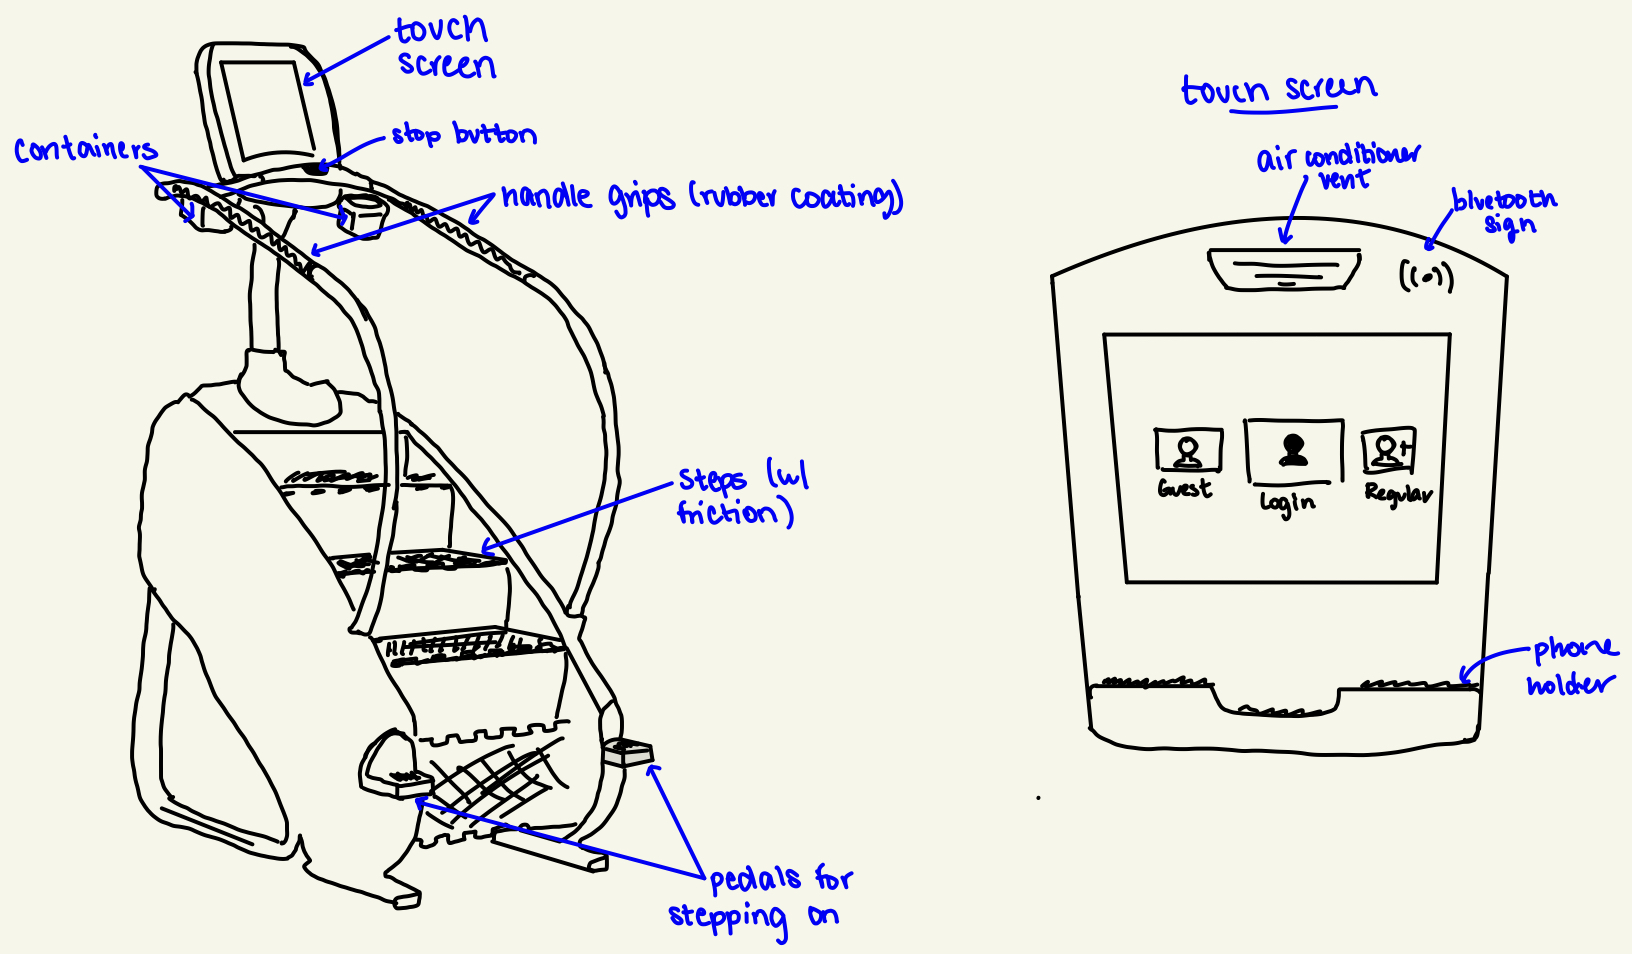 touch
screen
stop button
containers
handle grips (rubber coating)
steps (w/
friction)
pedals for
stepping on
touch screen
air conditioner
vent
bluetooth
sign
Guest
Login
Regular
phone
holder